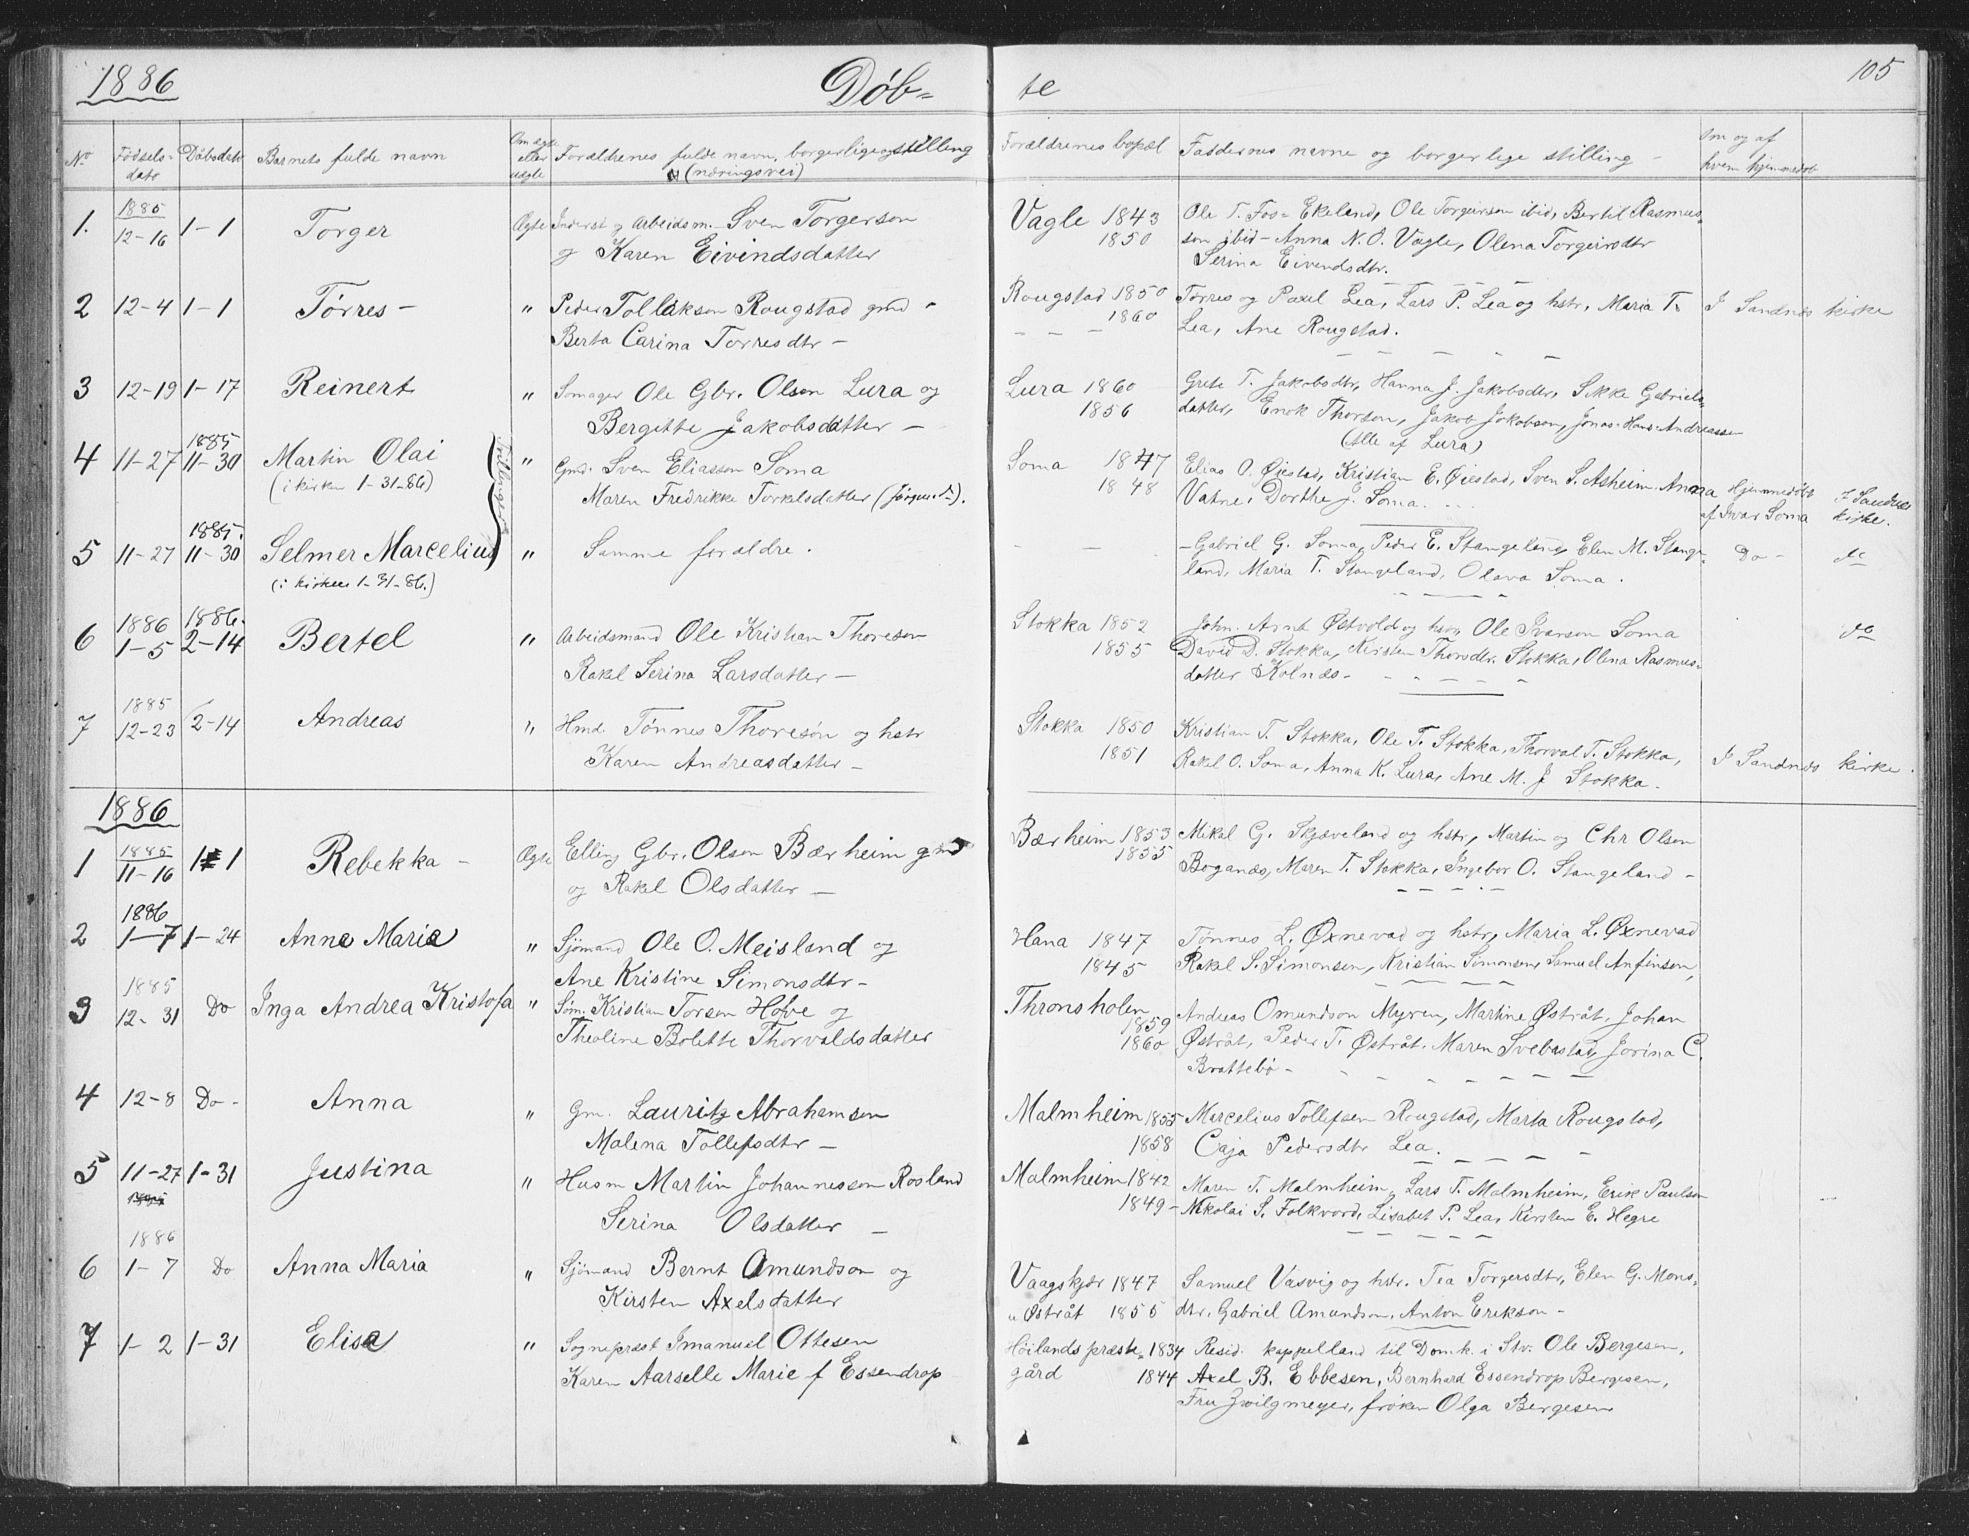 1886 Døb- te 105
No Fødsels- dato Døbsdato Barnets fulde navn Om ægte eller uægte Forældrenes fulde navn, borgerlige stilling (næringsvei) Forældrenes bopæl Faddernes navne og borgerlige stilling - Om og af hvem hjemmedøbt
1. 1885 12-16 1-1 Torger Ægte Inderst og Arbeidsm. Sven Torgerson Vagle 1843 Ole T. Fos- Ekeland, Ole Torgeirsen ibid, Bertil Rasmus-
og Karen Eivindsdatter 1850 son ibid - Anna N. O. Vagle, Olena Torgeirsdtr
Serina Eivendsdtr.
2 12-4 1-1 Tørres - " Peder Tollakson Rougstad gmd - Rougstad 1850 Tørres og Paxel Lea, Lars P. Lea og hstr, Maria T. I Sandnes kirke
Berta Carina Torresdtr - - - - 1860 Lea, Ane Rougstad.
3 12-19 1-17 Reinert " Somager Ole Gbr. Olson Lura og Lura 1860 Grete T. Jakobsdtr, Hanna J. Jakobsdtr, Sikke Gabriels-
Bergitte Jakobsdatter - 1856 datter, Enok Thorson, Jakob Jakobson, Jonas Hans Andreassen
(Alle af Lura)
4 11-27 1885 11-30 Martin Olai Tvillinger " Gmd. Sven Eliasson Soma Soma 1847 Elias O. Øiestad, Kristian E. Øiestad, Sven S. Asheim, Anna Hjemmedøbt I Sandnes
(i kirken 1-31-86) Maren Fredrikke Torkelsdatter (Jørgensd.). 1848 Vatne, Dorthe J. Soma. af Ivar Soma kirke.
5 11-27 1885. 11-30 Selmer Marcelius " Samme forældre. - - - - Gabriel G. Soma, Peder E. Stangeland, Elen M. Stange- Do - do
(i kirken 1-31-86.) land, Maria T. Stangeland, Olava Soma.
6 1886 1-5 1886. 2-14 Bertel " Arbeidsmand Ole Kristian Thoreson Stokka 1852 John Arnt Østvold og hstr, Ole Ivarson Soma do
Rakel Serina Larsdatter - 1855 David D. Stokka, Kirsten Thorsdtr. Stokka, Olena Rasmus-
datter Kolnæs -
7 1885 12-23 2-14 Andreas " Hmd Tønnes Thoreson og hstr Stokka 1850 Kristian T. Stokka, Ole T. Stokka, Thorval T. Stokka,
Karen Andreasdatter - 1851 Rakel O. Soma, Anna K. Lura, Ane M. J Stokka. I Sandnes kirke.
1886
1 1885 11-16 1-1 Rebekka - Ægte Elling Gbr. Olson Bærheim gmd Bærheim 1853 Mikal G. Skjæveland og hstr, Martin og Chr Olson
og Rakel Olsdatter - 1855 Boganæs, Maren T. Stokka, Ingebor O. Stangeland -
2 1886 1-7 1-24 Anna Maria " Sjømand Ole O. Meisland og Hana 1847 Tønnes L. Øxnevad og hstr, Maria L. Øxnevad
Ane Kristine Simonsdtr - 1845 Rakel S. Simonsen, Kristian Simonsen, Samuel Anfinsen,
3 1885 12-31 Do Inga Andrea Kristofa " Søm. Kristian Torsen Hove og Thronsholen 1859 Andreas Omundson Myren, Martine Østråt, Johan
Theoline Bolette Thorvaldsdatter 1860 Østråt, Peder T. Østråt. Maren Svebestad, Jorina C.
Brattebø -
4 12-8 Do - Anna " Gm. Lauritz Abrahamsen Malmheim 1855 Marcelius Tollefsen Rougstad, Marta Rougstad,
Malena Tollefsdtr - 1858 Caja Pedersdtr Lea.
5 11-27 1-31 Justina " Husm Martin Johannesson Rosland Malmheim 1842 Maren T. Malmheim, Lars T. Malmheim, Erik Paulson
Serina Olsdatter - 1849 - Nikolai S. Folkvord, Lisabet P. Lea, Kirsten E. Hegre
6 1886 1-7 Do Anna Maria " Sjømand Bernt Omundson og Vaagskjær 1847 Samuel Vasvig og hstr. Tea Torgersdtr, Elen G. Mons-
Kirsten Axelsdatter u Østråt 1855 dtr. Gabriel Amundson, Anton Erikson -
7 1-2 1-31 Elisa " Sognepræst Imanuel Ottesen Høilands præste- 1834 Resid. kappelland til Domk. i Stv. Ole Bergesen,
Karen Aarselle Marie f Essendrop gård 1844 Axel B. Ebbesen, Bernhard Essendrop Bergesen,
Fru Zwilgmeyer, frøken Olga Bergesen